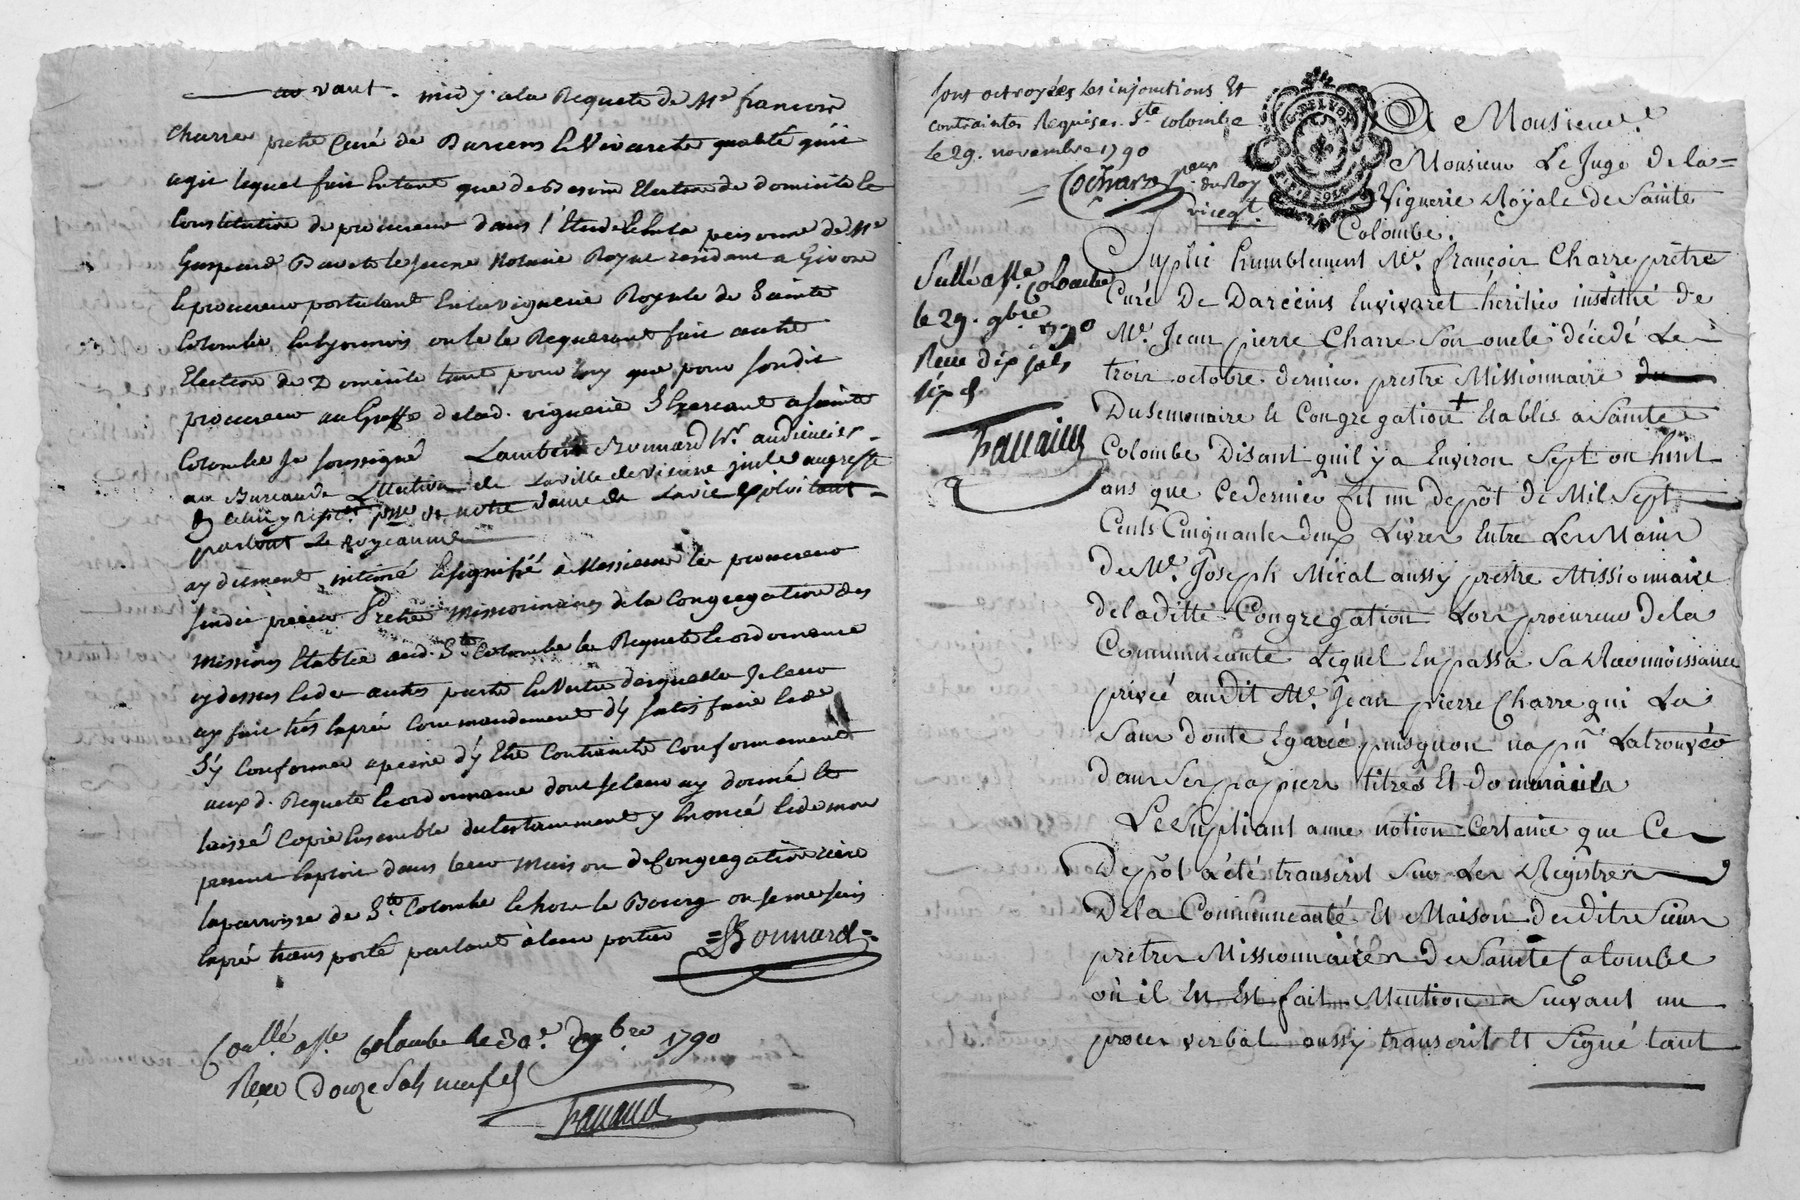 avant midy a la Requete de Mre francois
Charre pretre Curé de Darcens En Vivarets qualité quil
agit lequel fait Entant que de Besoin Election de domicile Et
Constitution de procureur dans l'Etude Et En la personne de Me
Gaspard Bavet le Jeune Notaire Royal residant a Givors
le procureur postulant En la viguerie Royale de Sainte
Colombe Enlyonnois ou le Requerant fait autre
Election de Domicile tant pour luy que pour sondit
procureur au Greffe de lad. viguerie S Exercant a Sainte
Colombe Je soussigné Lambert Bonnard hr. audiencier
au Bureau de L'Election de La ville de vienne
partout Le royaume
ay duement intimé Et signifié à Messieurs les procureur
sindic preires Pretres Missionnaires de la Congregation des
Missions Etablie aud. Ste Colombe les Requete Et ordonnance
cy dessus Et des autres parts En Vertu desquelles Je leur
ay fait trés Exprés Commandement d'y satisfaire Et de
S'y Conformer a peine d'y Etre Contraints Conformement
aux d. Requete Et ordonnance dont Je leur ay donné Et
laissé Copie Ensemble du testamment y Enoncé Et de mon
present Exploit dans leur Maison de Congregation riere
la parroisse de Ste. Colombe Et hors le Bourg ou Je me suis
Exprés transporté parlant à leur portier =Bonnard=
Conllé a Ste Colombe le 30e. 9bre 1790
Reçu Douze Sols neuf d
sont octroyées les injonctions Et
contraintes Requises. Ste colombe
le 29. novembre 1790
= Cochard
pcur
du Roy
vice gt.
Scellé a Ste Colombe
le 29. 9bre 1790
Recu dix sols
six d
G. DE LYON
A Monsieur
Monsieur Le Juge de la =
Viguerie Royale de Sainte
Colombe.
Suplie humblement Me. françois Charre prêtre
Curé De Darcens En vivaret héritier institué de
Me. Jean pierre Charre Son oncle décédé Le
trois octobre dernier. prestre Missionnaire du
Du Semenaire Et Congregation + Etablis a Sainte
Colombe Disant qu'il y a Environ Sept ou huit
ans que Ce dernier fit un depôt de Mil Sept
Cents Cinquante deux Livres Entre Les Mains
de Me. Joseph Méral aussy prestre Missionnaire
de la ditte Congregation Lors procureur de la
Communeauté Lequel En passa Sa Reconnoissance
privée audit Me. Jean pierre Charre qui La
Sans doute Egarée puisquon na pû La trouvér
dans Ses papiers titres Et documents
Le Supliant a une notion Certaine que Ce
Depôt a été transcrit Sur Les Registres
De la Communeauté Et Maison desdits Sieurs
prêtres Missionnaires de Sainte Colombe
où il En Est fait Mention Suivant un
procès verbal aussy transcrit Et Signé tant